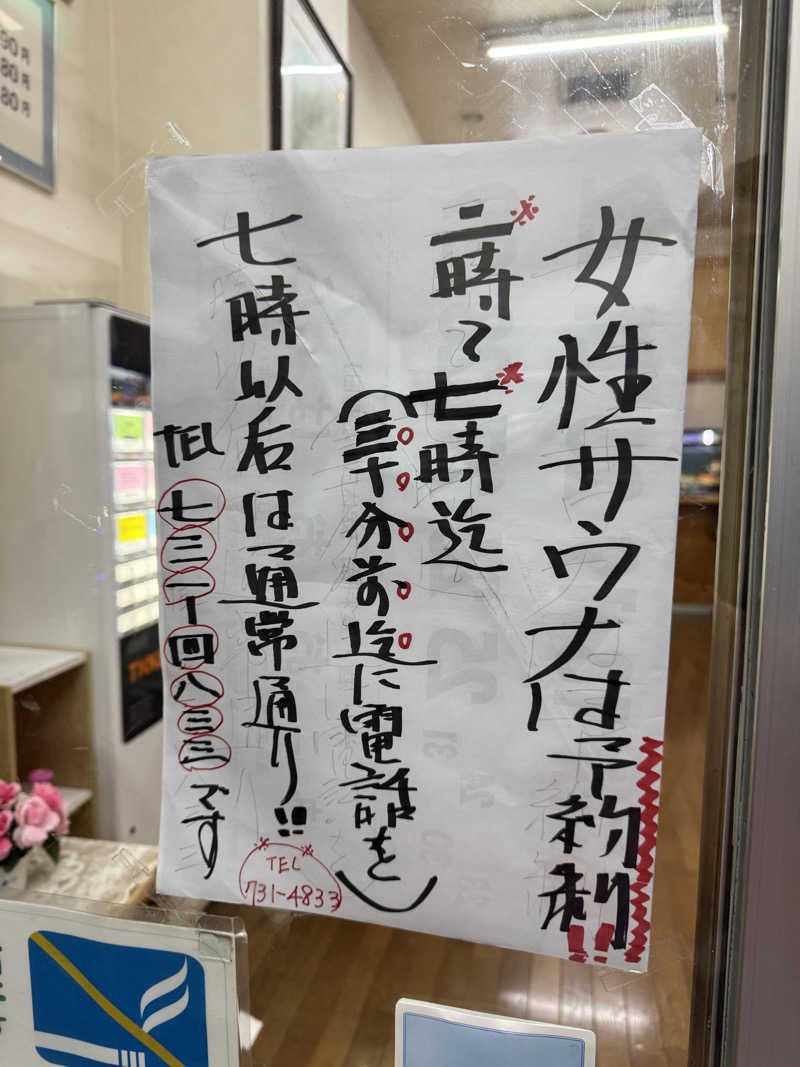 女性サウナは予約制!!
※二時〜※七時迄
(三十分前迄に電話を)
七時以后は通常通り!!
TEL 七三一ー四八三三です
TEL
731-4833
90円
80円
80円